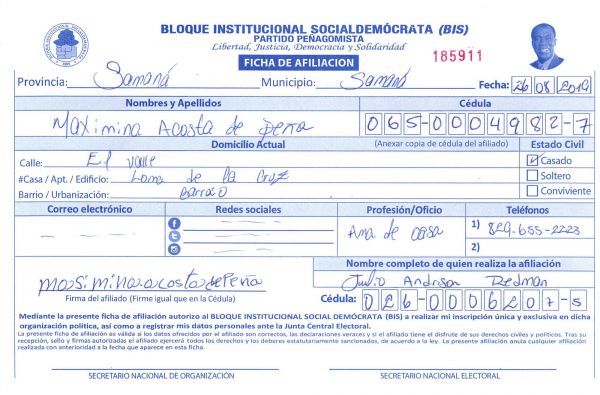 BLOQUE INSTITUCIONAL SOCIALDEMÓCRATA (BIS)
PARTIDO PEÑAGOMISTA
Libertad, Justicia, Democracia y Solidaridad
FICHA DE AFILIACION
185911
Provincia: Samaná Municipio: Samaná Fecha: 26 08 2019
Nombres y Apellidos Cédula
Maximina Acosta de Peña 065-0004982-7
Domicilio Actual (Anexar copia de cédula del afiliado) Estado Civil
Calle: El Valle Casado
#Casa / Apt. / Edificio: Loma de la Cruz Soltero
Barrio / Urbanización: Barraco Conviviente
Correo electrónico Redes sociales Profesión/Oficio Teléfonos
Ama de casa 1) 829-655-2223
2)
Nombre completo de quien realiza la afiliación
Maximina acosta de Peña Julio Andrison Redman
Firma del afiliado (Firme igual que en la Cédula) Cédula: 026-0006207-5
Mediante la presente ficha de afiliación autorizo al BLOQUE INSTITUCIONAL SOCIAL DEMÓCRATA (BIS) a realizar mi inscripción única y exclusiva en dicha
organización política, así como a registrar mis datos personales ante la Junta Central Electoral.
La presente ficha de afiliación es válida si los datos ofrecidos por el afiliado son correctas, las declaraciones veraces y si el afiliado tiene el disfrute de sus derechos civiles y políticos. Tras su
recepción, sello y firmas autorizadas el afiliado ejercerá todos los derechos y los deberes estatutariamente sancionados, de acuerdo a la ley. La presente afiliación anula cualquier afiliación
realizada con anterioridad a la fecha que aparece en esta ficha.
SECRETARIO NACIONAL DE ORGANIZACIÓN SECRETARIO NACIONAL ELECTORAL